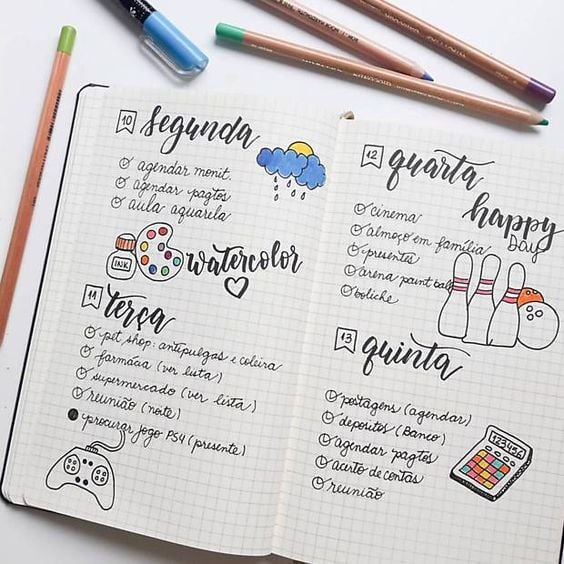 10
segunda
agendar monit.
agendar pagtos
aula aquarela
INK
watercolor
11
terça
pet shop: antipulgas e coleira
farmácia (ver lista)
supermercado (ver lista)
reunião (noite)
procurar jogo PS4 (presente)
12
quarta
happy
Day
cinema
almoço em família
presentes
arena paint ball
boliche
13
quinta
postagens (agendar)
depósitos (Banco)
agendar pagtos
acerto de contas
reunião
123456